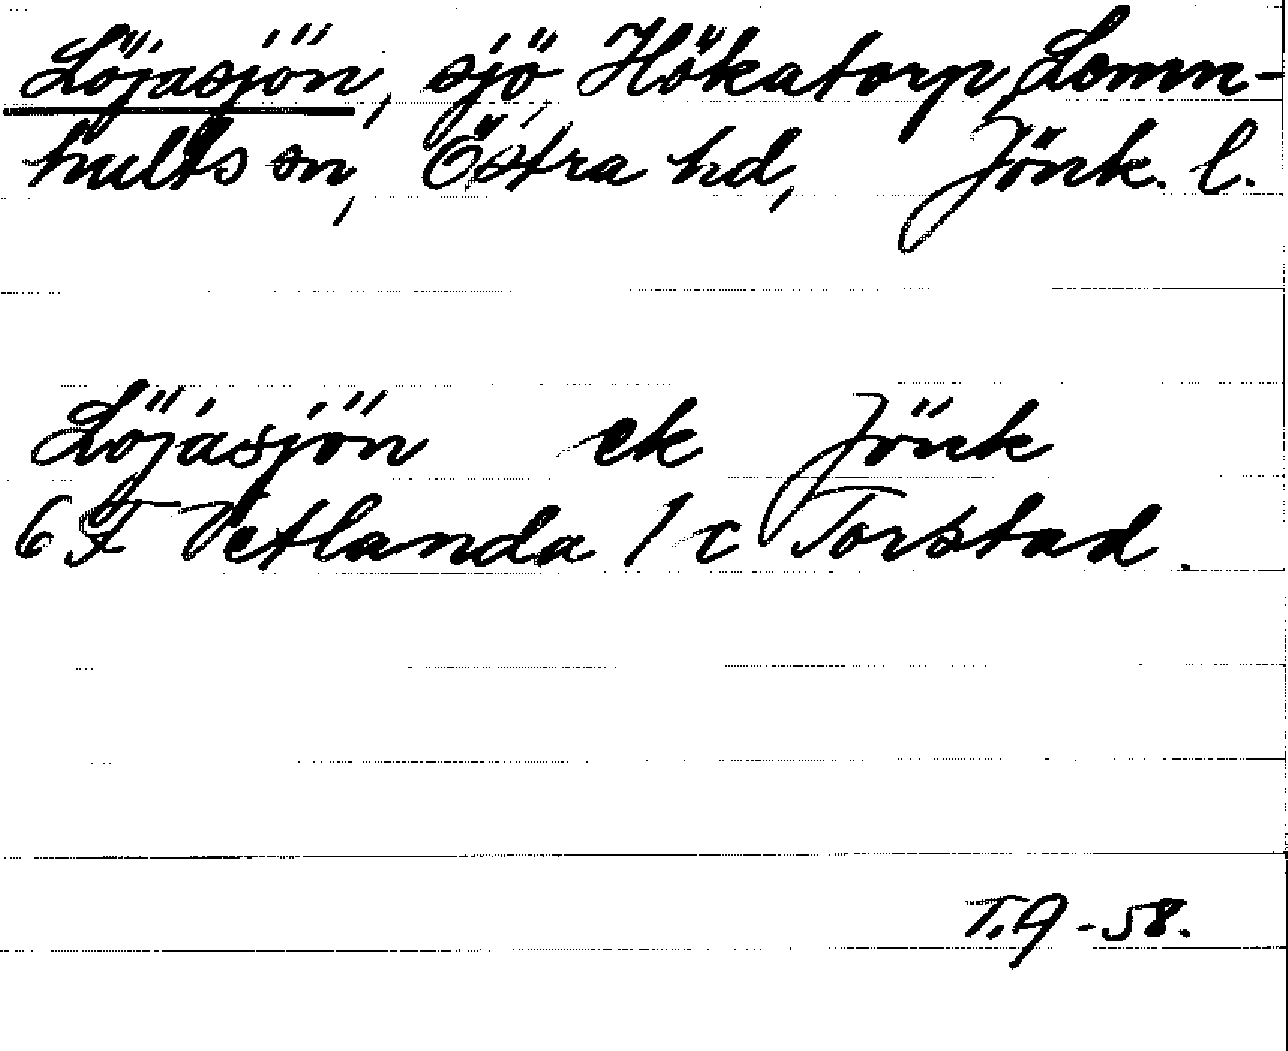 Löjasjön, sjö, Hökatorp, Lemn-
hults sn, Östra hd, Jönk. l.
Löjasjön ek Jönk
6 F Vetlanda 1 c Torstad.
T.9-58.